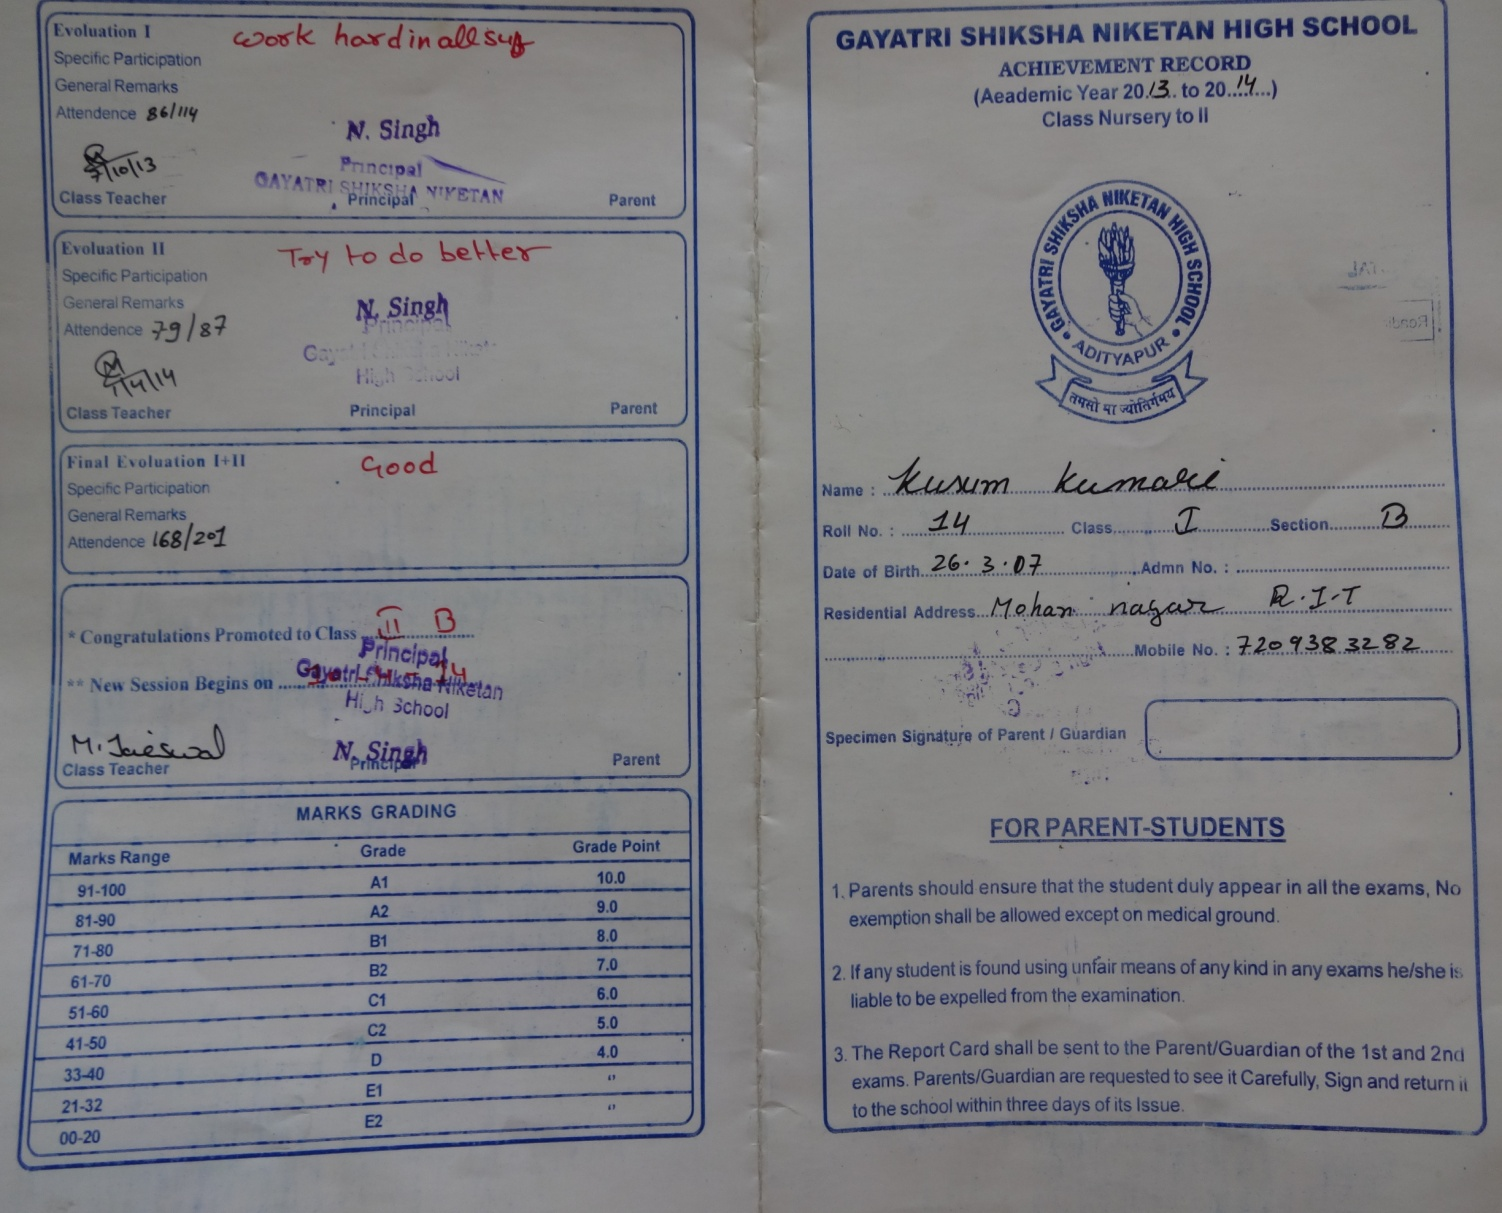 Evaluation I
work hard in all sub
Specific Participation
General Remarks
Attendence 86/114
N. Singh
Principal
GAYATRI SHIKSHA NIKETAN
7/10/13
Class Teacher Principal Parent
Evaluation II
Try to do better
Specific Participation
General Remarks
Attendence 79/87
N. Singh
Principal
High School
1/4/14
Class Teacher Principal Parent
Final Evaluation I+II
Good
Specific Participation
General Remarks
Attendence 168/201
* Congratulations Promoted to Class II B
Principal
** New Session Begins on
Gayatri Shiksha Niketan
High School
M. Jaiswal
N. Singh
Class Teacher Principal Parent
MARKS GRADING
Marks Range Grade Grade Point
91-100 A1 10.0
81-90 A2 9.0
71-80 B1 8.0
61-70 B2 7.0
51-60 C1 6.0
41-50 C2 5.0
33-40 D 4.0
21-32 E1 "
00-20 E2 "
GAYATRI SHIKSHA NIKETAN HIGH SCHOOL
ACHIEVEMENT RECORD
(Aeademic Year 2013 to 2014)
Class Nursery to II
GAYATRI SHIKSHA NIKETAN HIGH SCHOOL
ADITYAPUR
तमसो मा ज्योतिर्गमय
Name : Kusum Kumari
Roll No. : 14 Class I Section B
Date of Birth 26.3.07 Admn No. :
Residential Address Mohan nagar R.I.T
Mobile No. : 7209383282
Specimen Signature of Parent / Guardian
FOR PARENT-STUDENTS
1. Parents should ensure that the student duly appear in all the exams, No
exemption shall be allowed except on medical ground.
2. If any student is found using unfair means of any kind in any exams he/she is
liable to be expelled from the examination.
3. The Report Card shall be sent to the Parent/Guardian of the 1st and 2nd
exams. Parents/Guardian are requested to see it Carefully, Sign and return it
to the school within three days of its Issue.